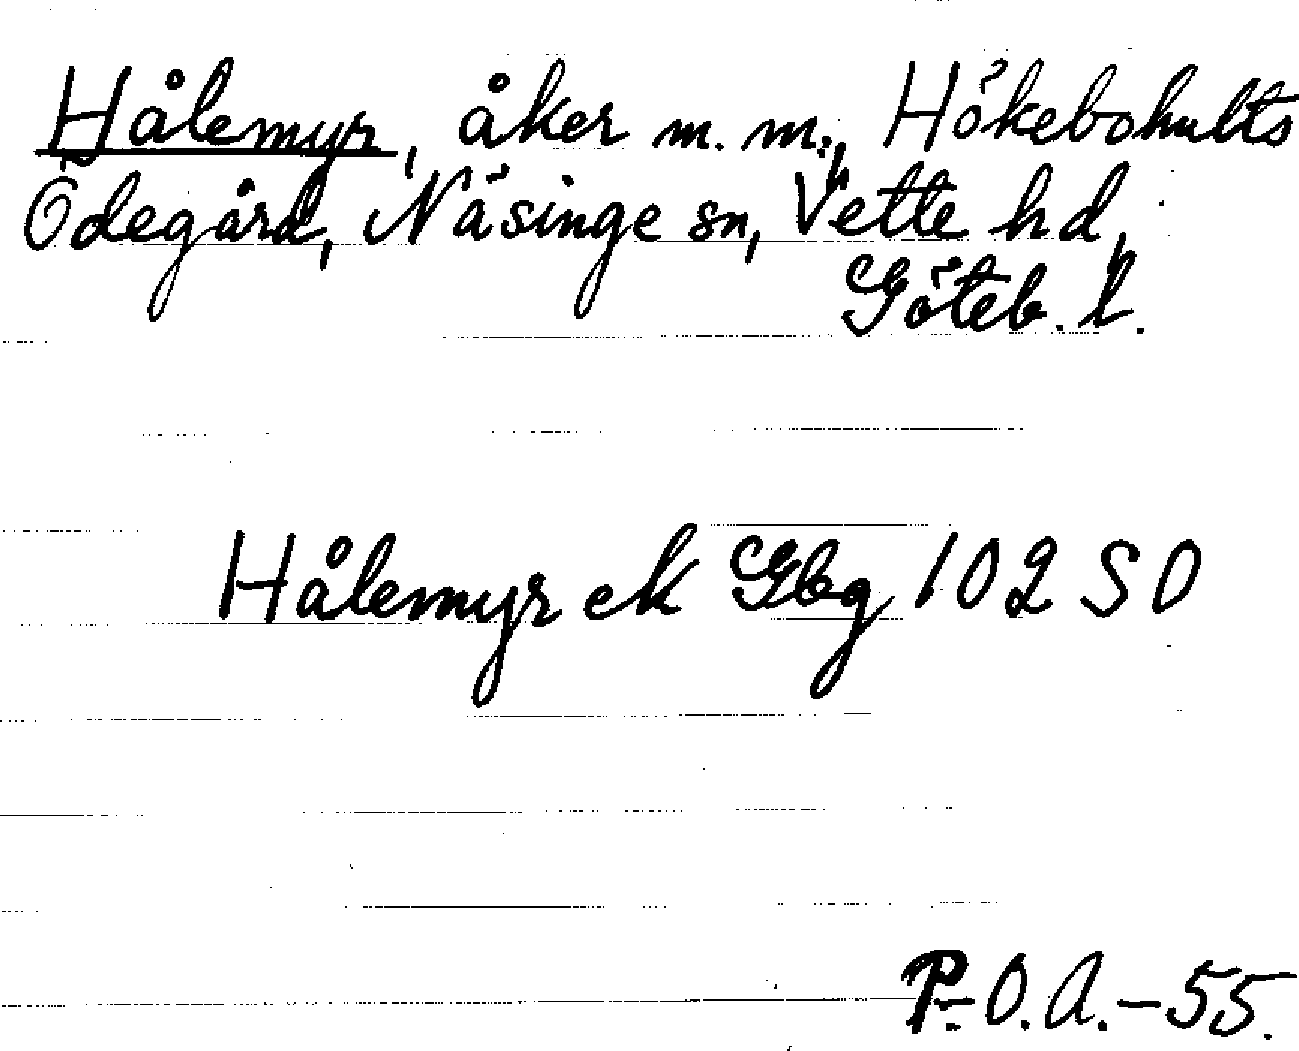 Hålemyr, åker m. m., Hökebohults
Ödegård, Näsinge sn, Vette hd,
Göteb. l.
Hålemyr ek Gbg 102 SO
P.O.A.-55.